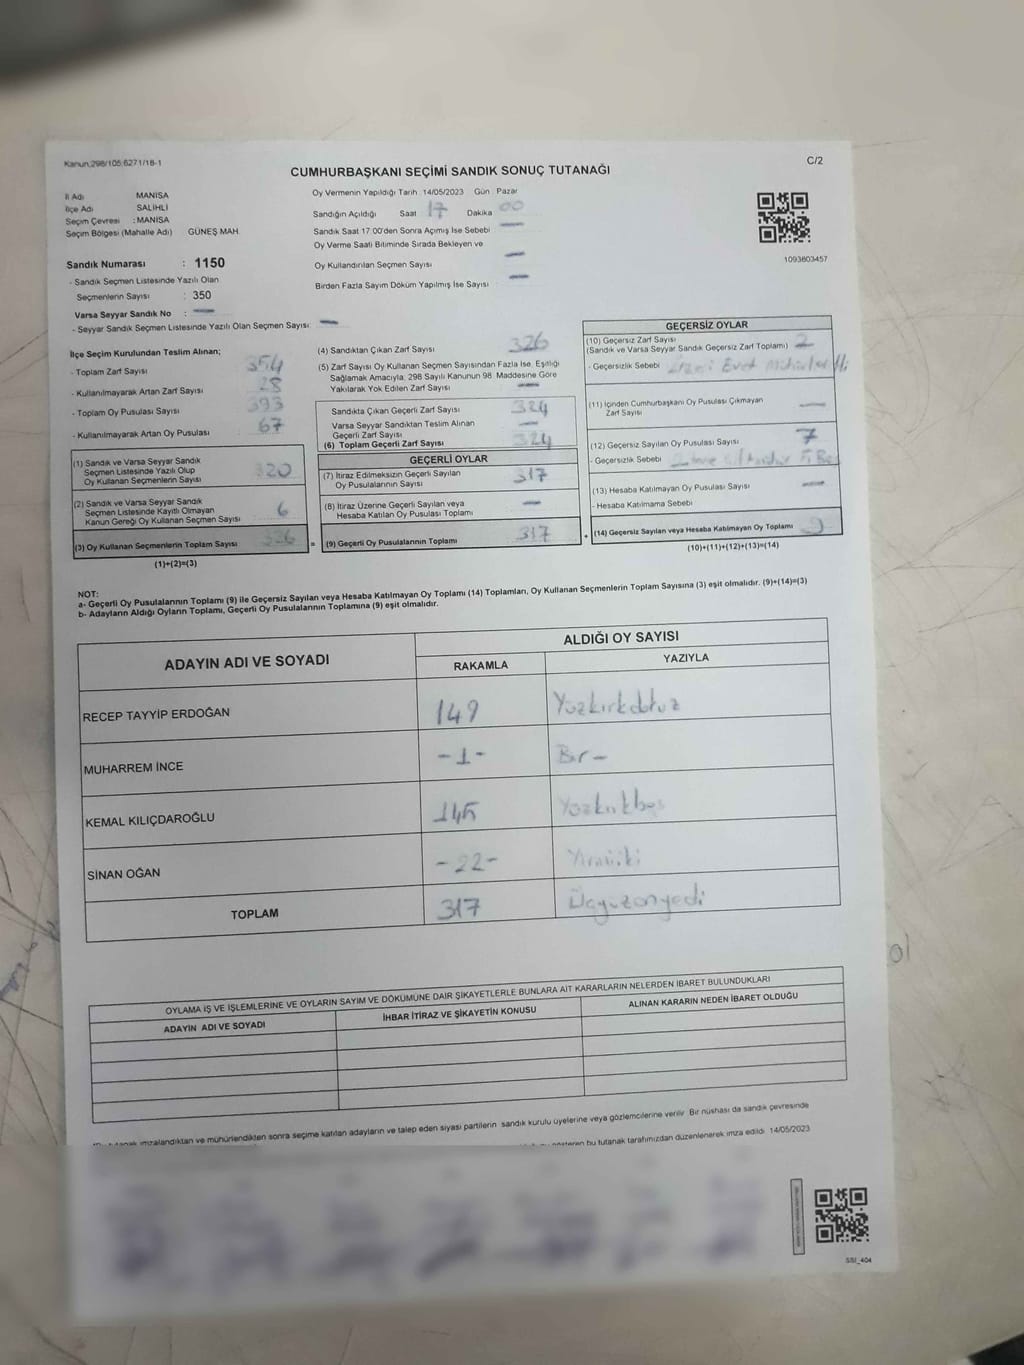 Kanun.298/105,6271/18-1
C/2
CUMHURBAŞKANI SEÇİMİ SANDIK SONUÇ TUTANAĞI
İl Adı MANİSA
İlçe Adı SALİHLİ
Seçim Çevresi : MANİSA
Seçim Bölgesi (Mahalle Adı) GÜNEŞ MAH.
Sandık Numarası : 1150
- Sandık Seçmen Listesinde Yazılı Olan
Seçmenlerin Sayısı : 350
Varsa Seyyar Sandık No : —
- Seyyar Sandık Seçmen Listesinde Yazılı Olan Seçmen Sayısı: —
Oy Vermenin Yapıldığı Tarih : 14/05/2023 Gün : Pazar
Sandığın Açıldığı Saat 17 Dakika 00
Sandık Saat 17:00'den Sonra Açımış İse Sebebi —
Oy Verme Saati Bitiminde Sırada Bekleyen ve
Oy Kullandırılan Seçmen Sayısı —
Birden Fazla Sayım Döküm Yapılmış İse Sayısı —
1093603457
İlçe Seçim Kurulundan Teslim Alınan;
- Toplam Zarf Sayısı 354
- Kullanılmayarak Artan Zarf Sayısı 28
- Toplam Oy Pusulası Sayısı 393
- Kullanılmayarak Artan Oy Pusulası 67
(1) Sandık ve Varsa Seyyar Sandık
Seçmen Listesinde Yazılı Olup
Oy Kullanan Seçmenlerin Sayısı 320
(2) Sandık ve Varsa Seyyar Sandık
Seçmen Listesinde Kayıtlı Olmayan
Kanun Gereği Oy Kullanan Seçmen Sayısı 6
(3) Oy Kullanan Seçmenlerin Toplam Sayısı 326
(1)+(2)=(3)
(4) Sandıktan Çıkan Zarf Sayısı 326
(5) Zarf Sayısı Oy Kullanan Seçmen Sayısından Fazla İse, Eşitliği
Sağlamak Amacıyla, 298 Sayılı Kanunun 98. Maddesine Göre
Yakılarak Yok Edilen Zarf Sayısı —
Sandıkta Çıkan Geçerli Zarf Sayısı 324
Varsa Seyyar Sandıktan Teslim Alınan
Geçerli Zarf Sayısı —
(6) Toplam Geçerli Zarf Sayısı 324
GEÇERLİ OYLAR
(7) İtiraz Edilmeksizin Geçerli Sayılan
Oy Pusulalarının Sayısı 317
(8) İtiraz Üzerine Geçerli Sayılan veya
Hesaba Katılan Oy Pusulası Toplamı —
= (9) Geçerli Oy Pusulalarının Toplamı 317
GEÇERSİZ OYLAR
(10) Geçersiz Zarf Sayısı
(Sandık ve Varsa Seyyar Sandık Geçersiz Zarf Toplamı) 2
- Geçersizlik Sebebi Evet
(11) İçinden Cumhurbaşkanı Oy Pusulası Çıkmayan
Zarf Sayısı —
(12) Geçersiz Sayılan Oy Pusulası Sayısı 7
- Geçersizlik Sebebi
(13) Hesaba Katılmayan Oy Pusulası Sayısı —
- Hesaba Katılmama Sebebi
+ (14) Geçersiz Sayılan veya Hesaba Katılmayan Oy Toplamı 9
(10)+(11)+(12)+(13)=(14)
NOT:
a- Geçerli Oy Pusulalarının Toplamı (9) ile Geçersiz Sayılan veya Hesaba Katılmayan Oy Toplamı (14) Toplamları, Oy Kullanan Seçmenlerin Toplam Sayısına (3) eşit olmalıdır. (9)+(14)=(3)
b- Adayların Aldığı Oyların Toplamı, Geçerli Oy Pusulalarının Toplamına (9) eşit olmalıdır.
ADAYIN ADI VE SOYADI ALDIĞI OY SAYISI
RAKAMLA YAZIYLA
RECEP TAYYİP ERDOĞAN 149 Yüzkırkdokuz
MUHARREM İNCE -1- Bir-
KEMAL KILIÇDAROĞLU 145 Yüzkırkbeş
SİNAN OĞAN -22- Yirmiiki
TOPLAM 317 Üçyüzonyedi
OYLAMA İŞ VE İŞLEMLERİNE VE OYLARIN SAYIM VE DÖKÜMÜNE DAİR ŞİKAYETLERLE BUNLARA AİT KARARLARIN NELERDEN İBARET BULUNDUKLARI
ADAYIN ADI VE SOYADI İHBAR İTİRAZ VE ŞİKAYETİN KONUSU ALINAN KARARIN NEDEN İBARET OLDUĞU
tutanak imzalandıktan ve mühürlendikten sonra seçime katılan adayların ve talep eden siyasi partilerin sandık kurulu üyelerine veya gözlemcilerine verilir. Bir nüshası da sandık çevresinde
gösteren bu tutanak tarafımızdan düzenlenerek imza edildi. 14/05/2023
SSI_404